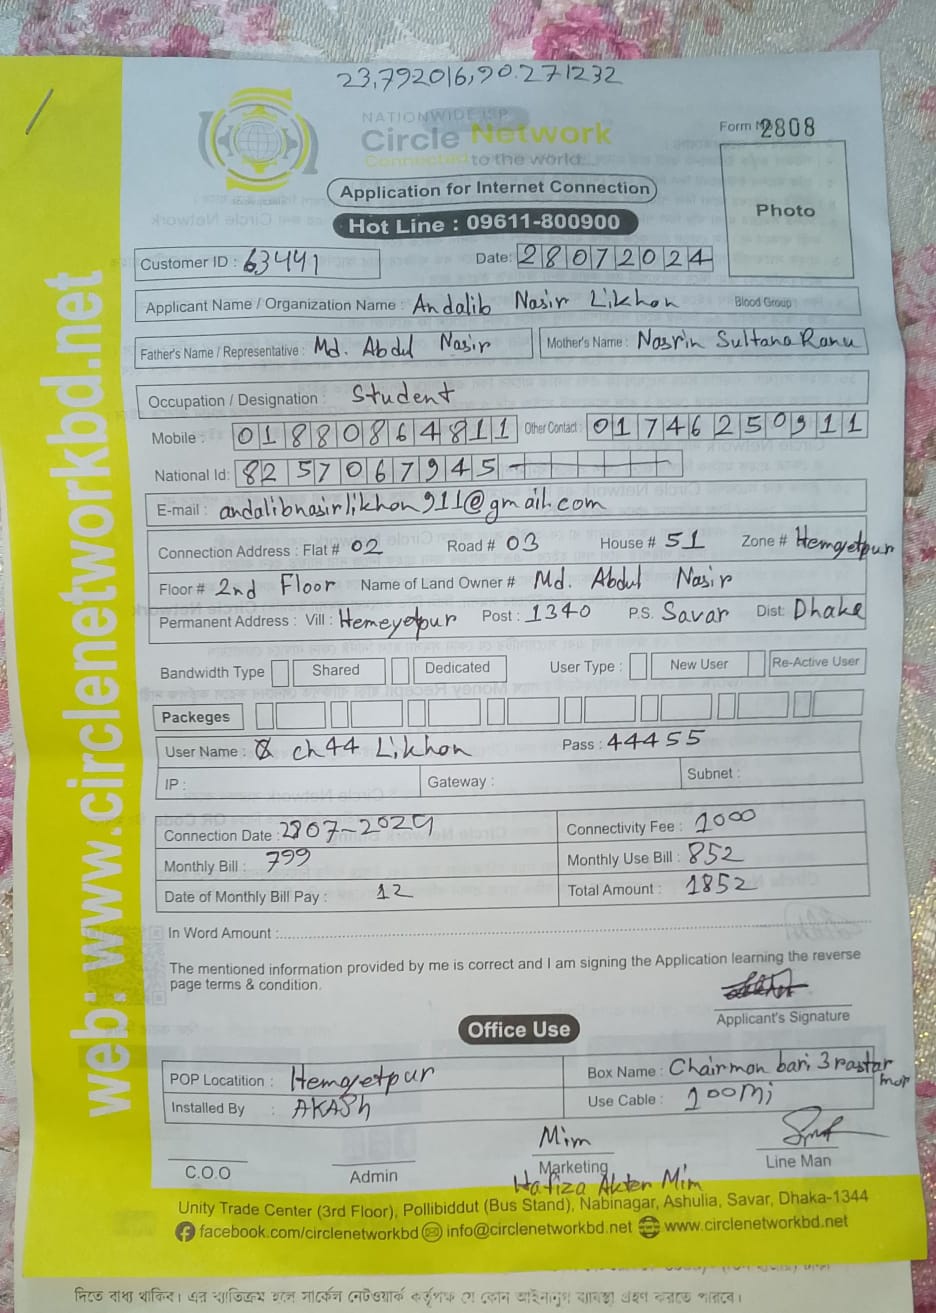 23.792016,90.271232
NATIONWIDE ISP
Circle Network
Connected to the world
Form No 2808
Photo
Application for Internet Connection
Hot Line : 09611-800900
Customer ID : 63441
Date: 28072024
Applicant Name / Organization Name : Andalib Nasir Likhon Blood Group :
Father's Name / Representative : Md. Abdul Nasir Mother's Name : Nasrin Sultana Ranu
Occupation / Designation : Student
Mobile : 01880864811 Other Contact : 01746250911
National Id: 8257067945
E-mail : andalibnasirlikhon911@gmail.com
Connection Address : Flat # 02 Road # 03 House # 51 Zone # Hemayetpur
Floor # 2nd Floor Name of Land Owner # Md. Abdul Nasir
Permanent Address : Vill : Hemeyetpur Post : 1340 P.S. Savar Dist: Dhaka
Bandwidth Type Shared Dedicated User Type : New User Re-Active User
Packeges
User Name : ch44 Likhon Pass : 44455
IP : Gateway : Subnet :
Connection Date : 2807-2024 Connectivity Fee : 1000
Monthly Bill : 799 Monthly Use Bill : 852
Date of Monthly Bill Pay : 12 Total Amount : 1852
In Word Amount :
The mentioned information provided by me is correct and I am signing the Application learning the reverse
page terms & condition.
Applicant's Signature
Office Use
POP Locatition : Hemayetpur Box Name : Chairman bari 3 rastar mor
Installed By : AKASh Use Cable : 100Mi
Mim
C.O.O Admin Marketing Line Man
Hafiza Akter Mim
Unity Trade Center (3rd Floor), Pollibiddut (Bus Stand), Nabinagar, Ashulia, Savar, Dhaka-1344
facebook.com/circlenetworkbd info@circlenetworkbd.net www.circlenetworkbd.net
web: www.circlenetworkbd.net
দিতে বাধ্য থাকিব। এর ব্যতিক্রম হলে সার্কেল নেটওয়ার্ক কর্তৃপক্ষ যে কোন আইনানুগ ব্যবস্থা গ্রহণ করতে পারবে।